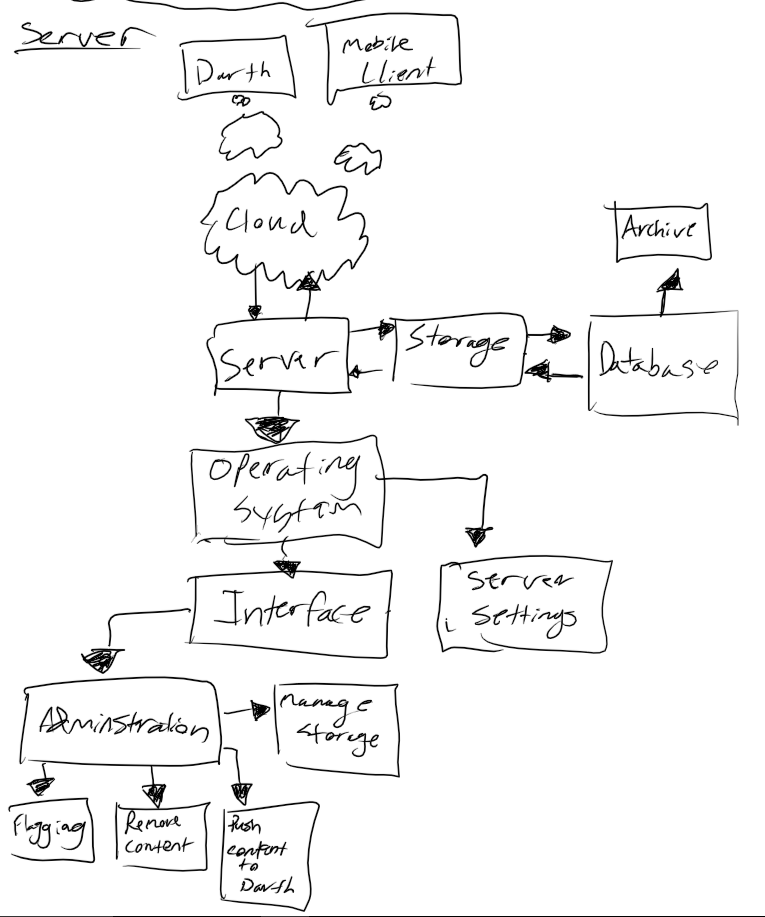 Server
Darth
Mobile
Client
Cloud
Archive
Server
Storage
Database
Operating
System
Server
Settings
Interface
Adminstration
Manage
Storage
Flagging
Remove
Content
Push
Content
to
Darth